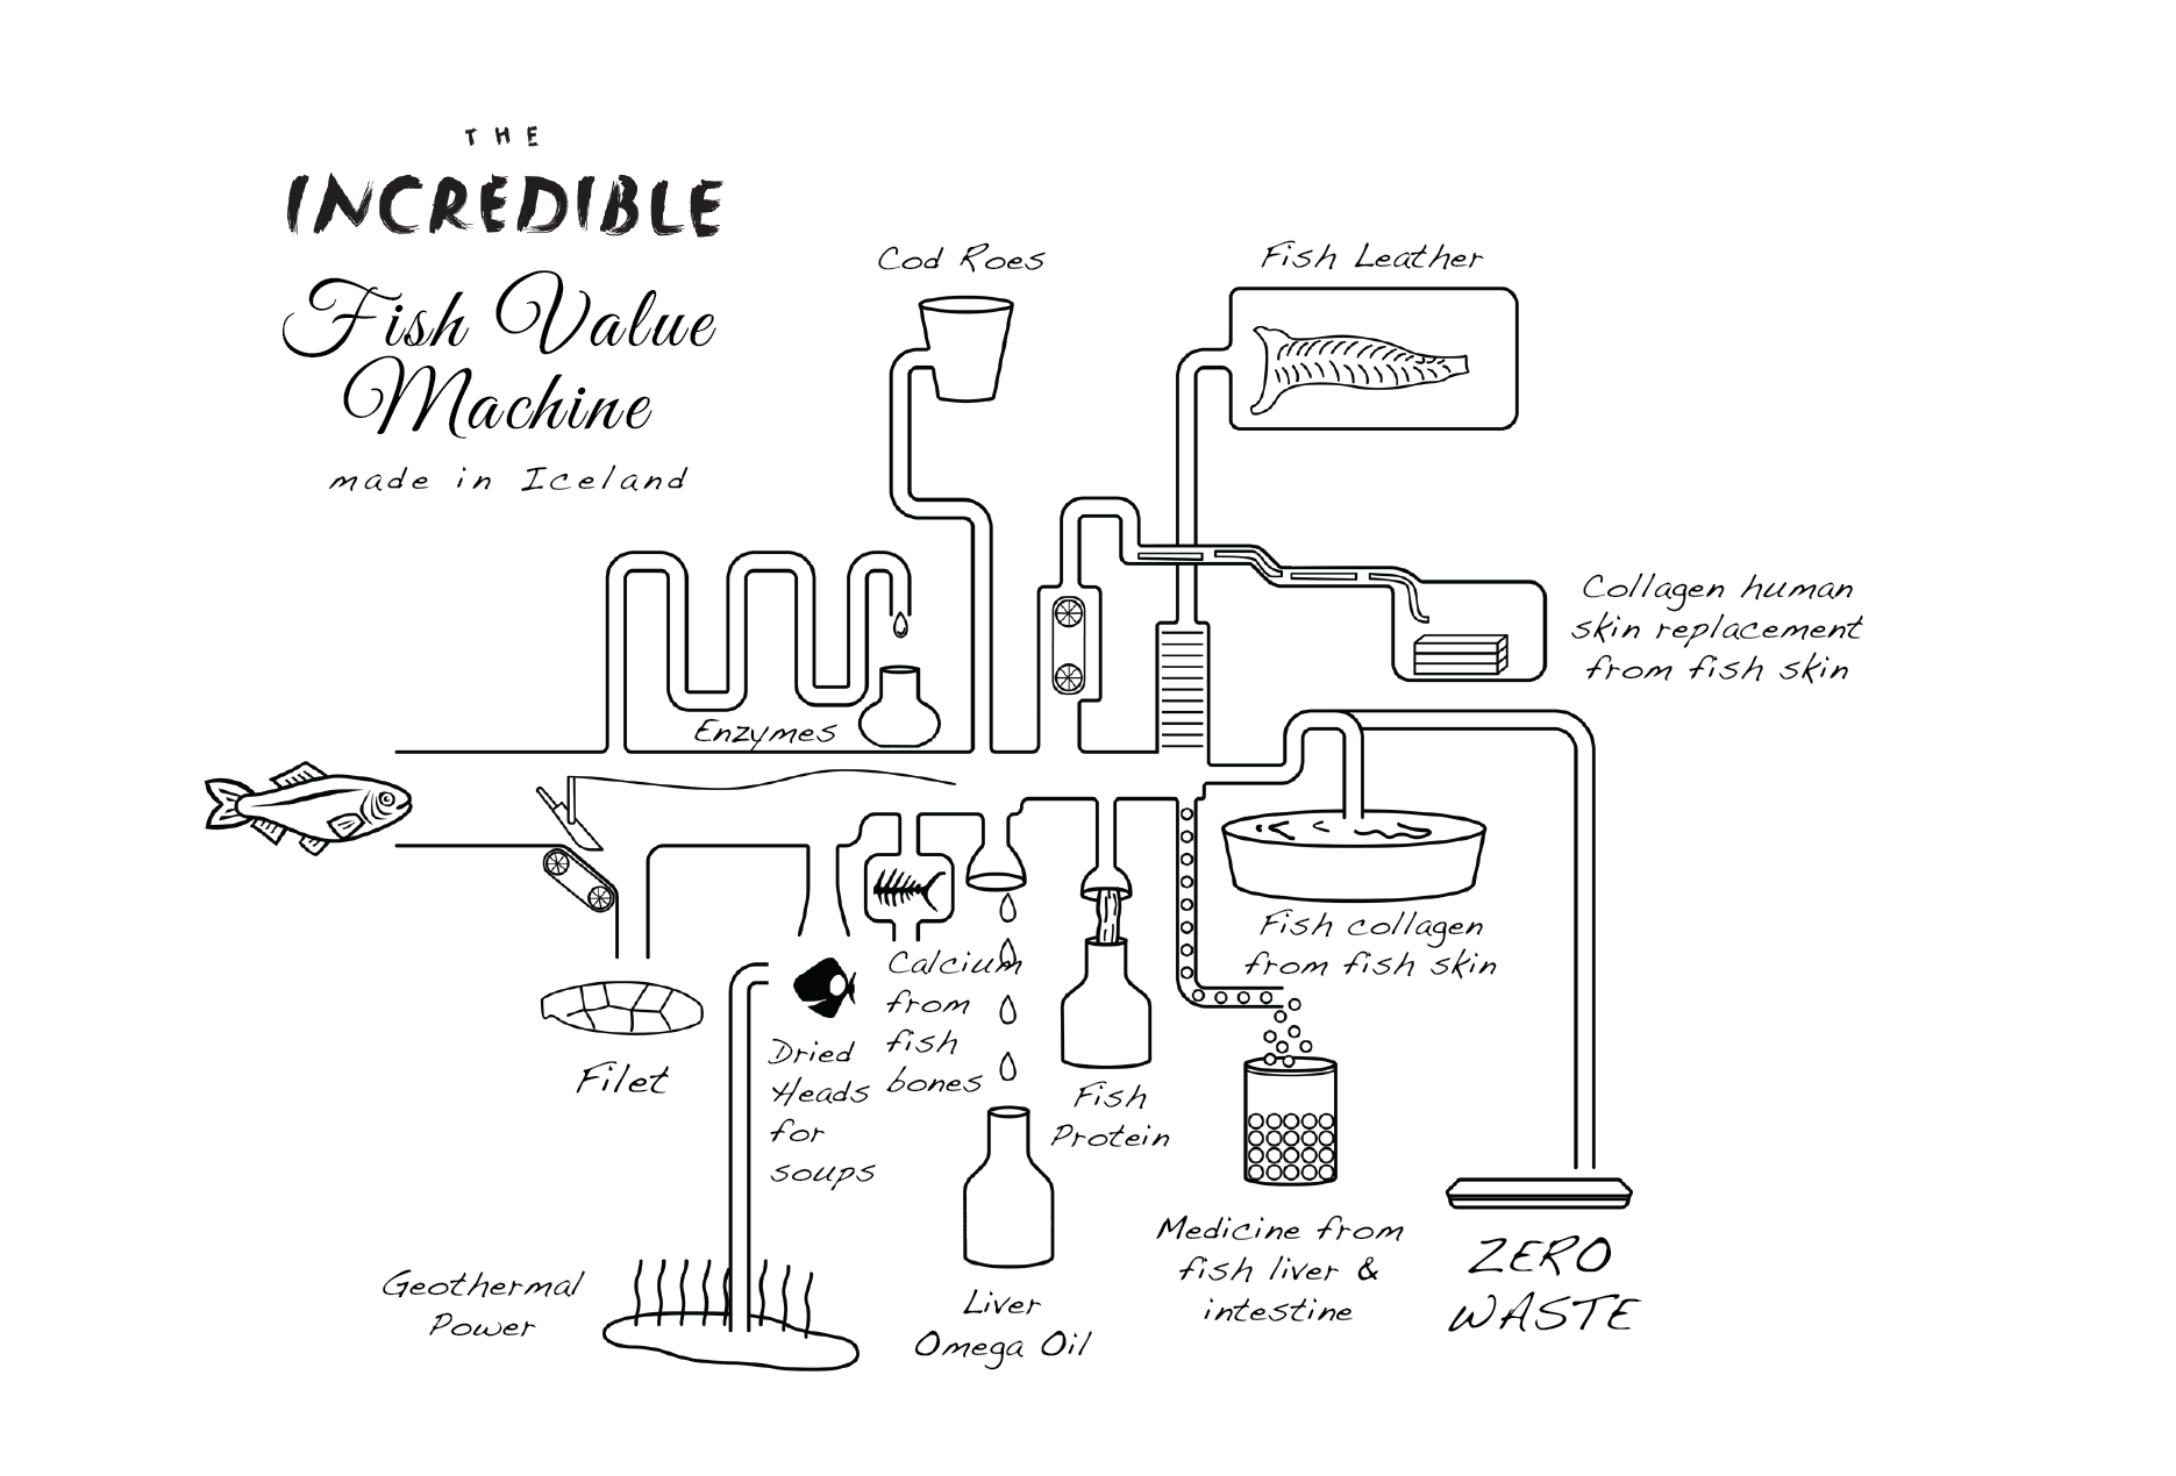 THE
INCREDIBLE
Fish Value
Machine
made in Iceland
Cod Roes
Fish Leather
Collagen human
skin replacement
from fish skin
Enzymes
Fish collagen
from fish skin
Filet
Dried
Heads
for
soups
Calcium
from
fish
bones
Fish
Protein
Medicine from
fish liver &
intestine
ZERO
WASTE
Geothermal
Power
Liver
Omega Oil